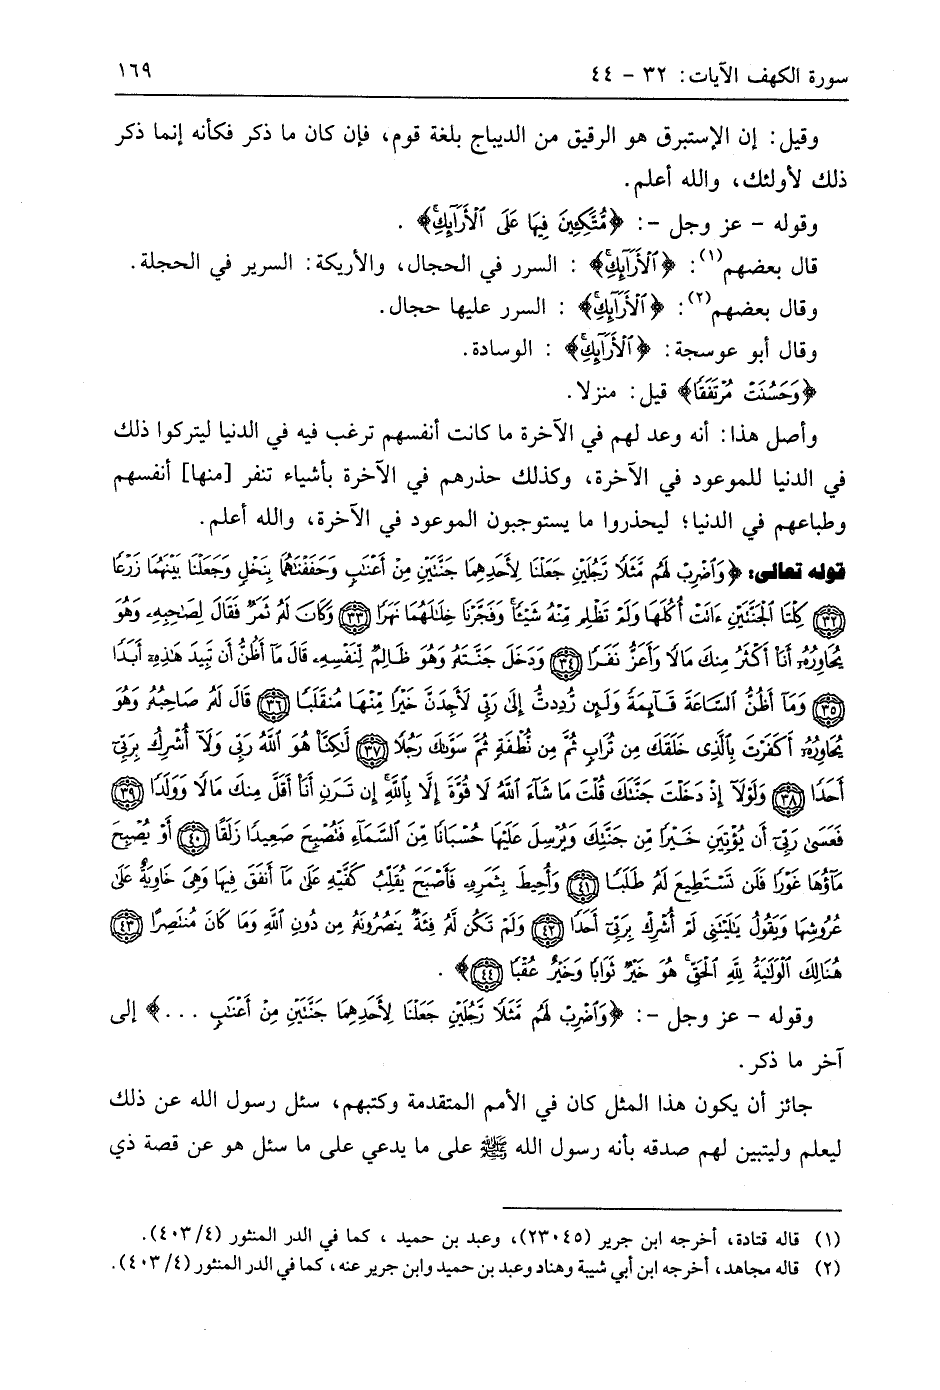 سورة الكهف الآيات: ٣٢ - ٤٤ ١٦٩
وقيل: إن الإستبرق هو الرقيق من الديباج بلغة قوم، فإن كان ما ذكر فكأنه إنما ذكر
ذلك لأولئك، والله أعلم.
وقوله - عز وجل -: ﴿مُّتَّكِئِينَ فِيهَا عَلَى ٱلْأَرَآئِكِۚ﴾ .
قال بعضهم(١): ﴿ٱلْأَرَآئِكِۚ﴾ : السرر في الحجال، والأريكة: السرير في الحجلة.
وقال بعضهم(٢): ﴿ٱلْأَرَآئِكِۚ﴾ : السرر عليها حجال.
وقال أبو عوسجة: ﴿ٱلْأَرَآئِكِۚ﴾ : الوسادة.
﴿وَحَسُنَتْ مُرْتَفَقًا﴾ قيل: منزلا.
وأصل هذا: أنه وعد لهم في الآخرة ما كانت أنفسهم ترغب فيه في الدنيا ليتركوا ذلك
في الدنيا للموعود في الآخرة، وكذلك حذرهم في الآخرة بأشياء تنفر [منها] أنفسهم
وطباعهم في الدنيا؛ ليحذروا ما يستوجبون الموعود في الآخرة، والله أعلم.
قوله تعالى: ﴿وَٱضْرِبْ لَهُم مَّثَلًا رَّجُلَيْنِ جَعَلْنَا لِأَحَدِهِمَا جَنَّتَيْنِ مِنْ أَعْنَٰبٍ وَحَفَفْنَٰهُمَا بِنَخْلٍ وَجَعَلْنَا بَيْنَهُمَا زَرْعًا
﴿٣٢﴾ كِلْتَا ٱلْجَنَّتَيْنِ ءَاتَتْ أُكُلَهَا وَلَمْ تَظْلِم مِّنْهُ شَيْـًٔاۚ وَفَجَّرْنَا خِلَٰلَهُمَا نَهَرًا ﴿٣٣﴾ وَكَانَ لَهُۥ ثَمَرٌ فَقَالَ لِصَٰحِبِهِۦ وَهُوَ
يُحَاوِرُهُۥٓ أَنَا۠ أَكْثَرُ مِنكَ مَالًا وَأَعَزُّ نَفَرًا ﴿٣٤﴾ وَدَخَلَ جَنَّتَهُۥ وَهُوَ ظَالِمٌ لِّنَفْسِهِۦ قَالَ مَآ أَظُنُّ أَن تَبِيدَ هَٰذِهِۦٓ أَبَدًا
﴿٣٥﴾ وَمَآ أَظُنُّ ٱلسَّاعَةَ قَآئِمَةً وَلَئِن رُّدِدتُّ إِلَىٰ رَبِّى لَأَجِدَنَّ خَيْرًا مِّنْهَا مُنقَلَبًا ﴿٣٦﴾ قَالَ لَهُۥ صَاحِبُهُۥ وَهُوَ
يُحَاوِرُهُۥٓ أَكَفَرْتَ بِٱلَّذِى خَلَقَكَ مِن تُرَابٍ ثُمَّ مِن نُّطْفَةٍ ثُمَّ سَوَّىٰكَ رَجُلًا ﴿٣٧﴾ لَّٰكِنَّا۠ هُوَ ٱللَّهُ رَبِّى وَلَآ أُشْرِكُ بِرَبِّىٓ
أَحَدًا ﴿٣٨﴾ وَلَوْلَآ إِذْ دَخَلْتَ جَنَّتَكَ قُلْتَ مَا شَآءَ ٱللَّهُ لَا قُوَّةَ إِلَّا بِٱللَّهِۚ إِن تَرَنِ أَنَا۠ أَقَلَّ مِنكَ مَالًا وَوَلَدًا ﴿٣٩﴾
فَعَسَىٰ رَبِّىٓ أَن يُؤْتِيَنِ خَيْرًا مِّن جَنَّتِكَ وَيُرْسِلَ عَلَيْهَا حُسْبَانًا مِّنَ ٱلسَّمَآءِ فَتُصْبِحَ صَعِيدًا زَلَقًا ﴿٤٠﴾ أَوْ يُصْبِحَ
مَآؤُهَا غَوْرًا فَلَن تَسْتَطِيعَ لَهُۥ طَلَبًا ﴿٤١﴾ وَأُحِيطَ بِثَمَرِهِۦ فَأَصْبَحَ يُقَلِّبُ كَفَّيْهِ عَلَىٰ مَآ أَنفَقَ فِيهَا وَهِىَ خَاوِيَةٌ عَلَىٰ
عُرُوشِهَا وَيَقُولُ يَٰلَيْتَنِى لَمْ أُشْرِكْ بِرَبِّىٓ أَحَدًا ﴿٤٢﴾ وَلَمْ تَكُن لَّهُۥ فِئَةٌ يَنصُرُونَهُۥ مِن دُونِ ٱللَّهِ وَمَا كَانَ مُنتَصِرًا ﴿٤٣﴾
هُنَالِكَ ٱلْوَلَٰيَةُ لِلَّهِ ٱلْحَقِّۚ هُوَ خَيْرٌ ثَوَابًا وَخَيْرٌ عُقْبًا ﴿٤٤﴾﴾ .
وقوله - عز وجل -: ﴿وَٱضْرِبْ لَهُم مَّثَلًا رَّجُلَيْنِ جَعَلْنَا لِأَحَدِهِمَا جَنَّتَيْنِ مِنْ أَعْنَٰبٍ ...﴾ إلى
آخر ما ذكر.
جائز أن يكون هذا المثل كان في الأمم المتقدمة وكتبهم، سئل رسول الله عن ذلك
ليعلم وليتبين لهم صدقه بأنه رسول الله ﷺ على ما يدعي على ما سئل هو عن قصة ذي
(١) قاله قتادة، أخرجه ابن جرير (٢٣٠٤٥)، وعبد بن حميد ، كما في الدر المنثور (٤/٤٠٣).
(٢) قاله مجاهد، أخرجه ابن أبي شيبة وهناد وعبد بن حميد وابن جرير عنه، كما في الدر المنثور (٤/٤٠٣).